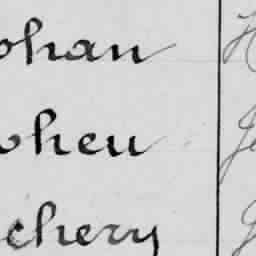 ohan
oheu
chery